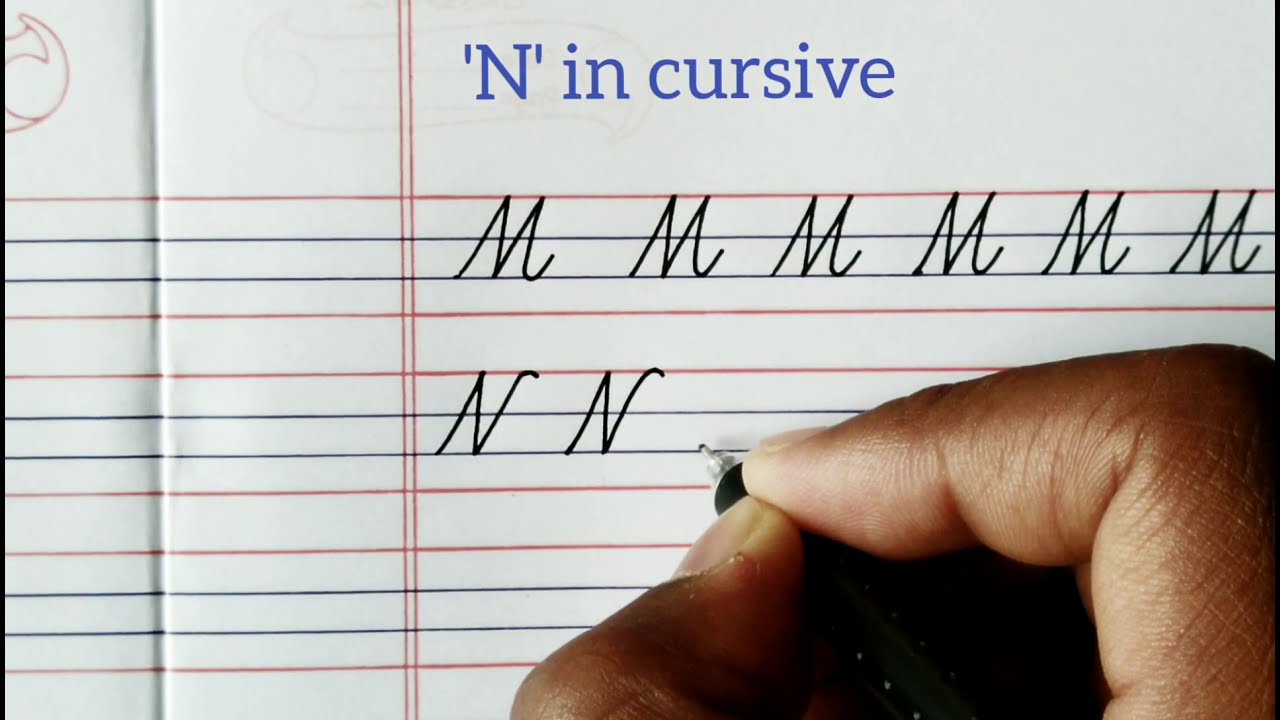 'N' in cursive
M M M M M M
N N